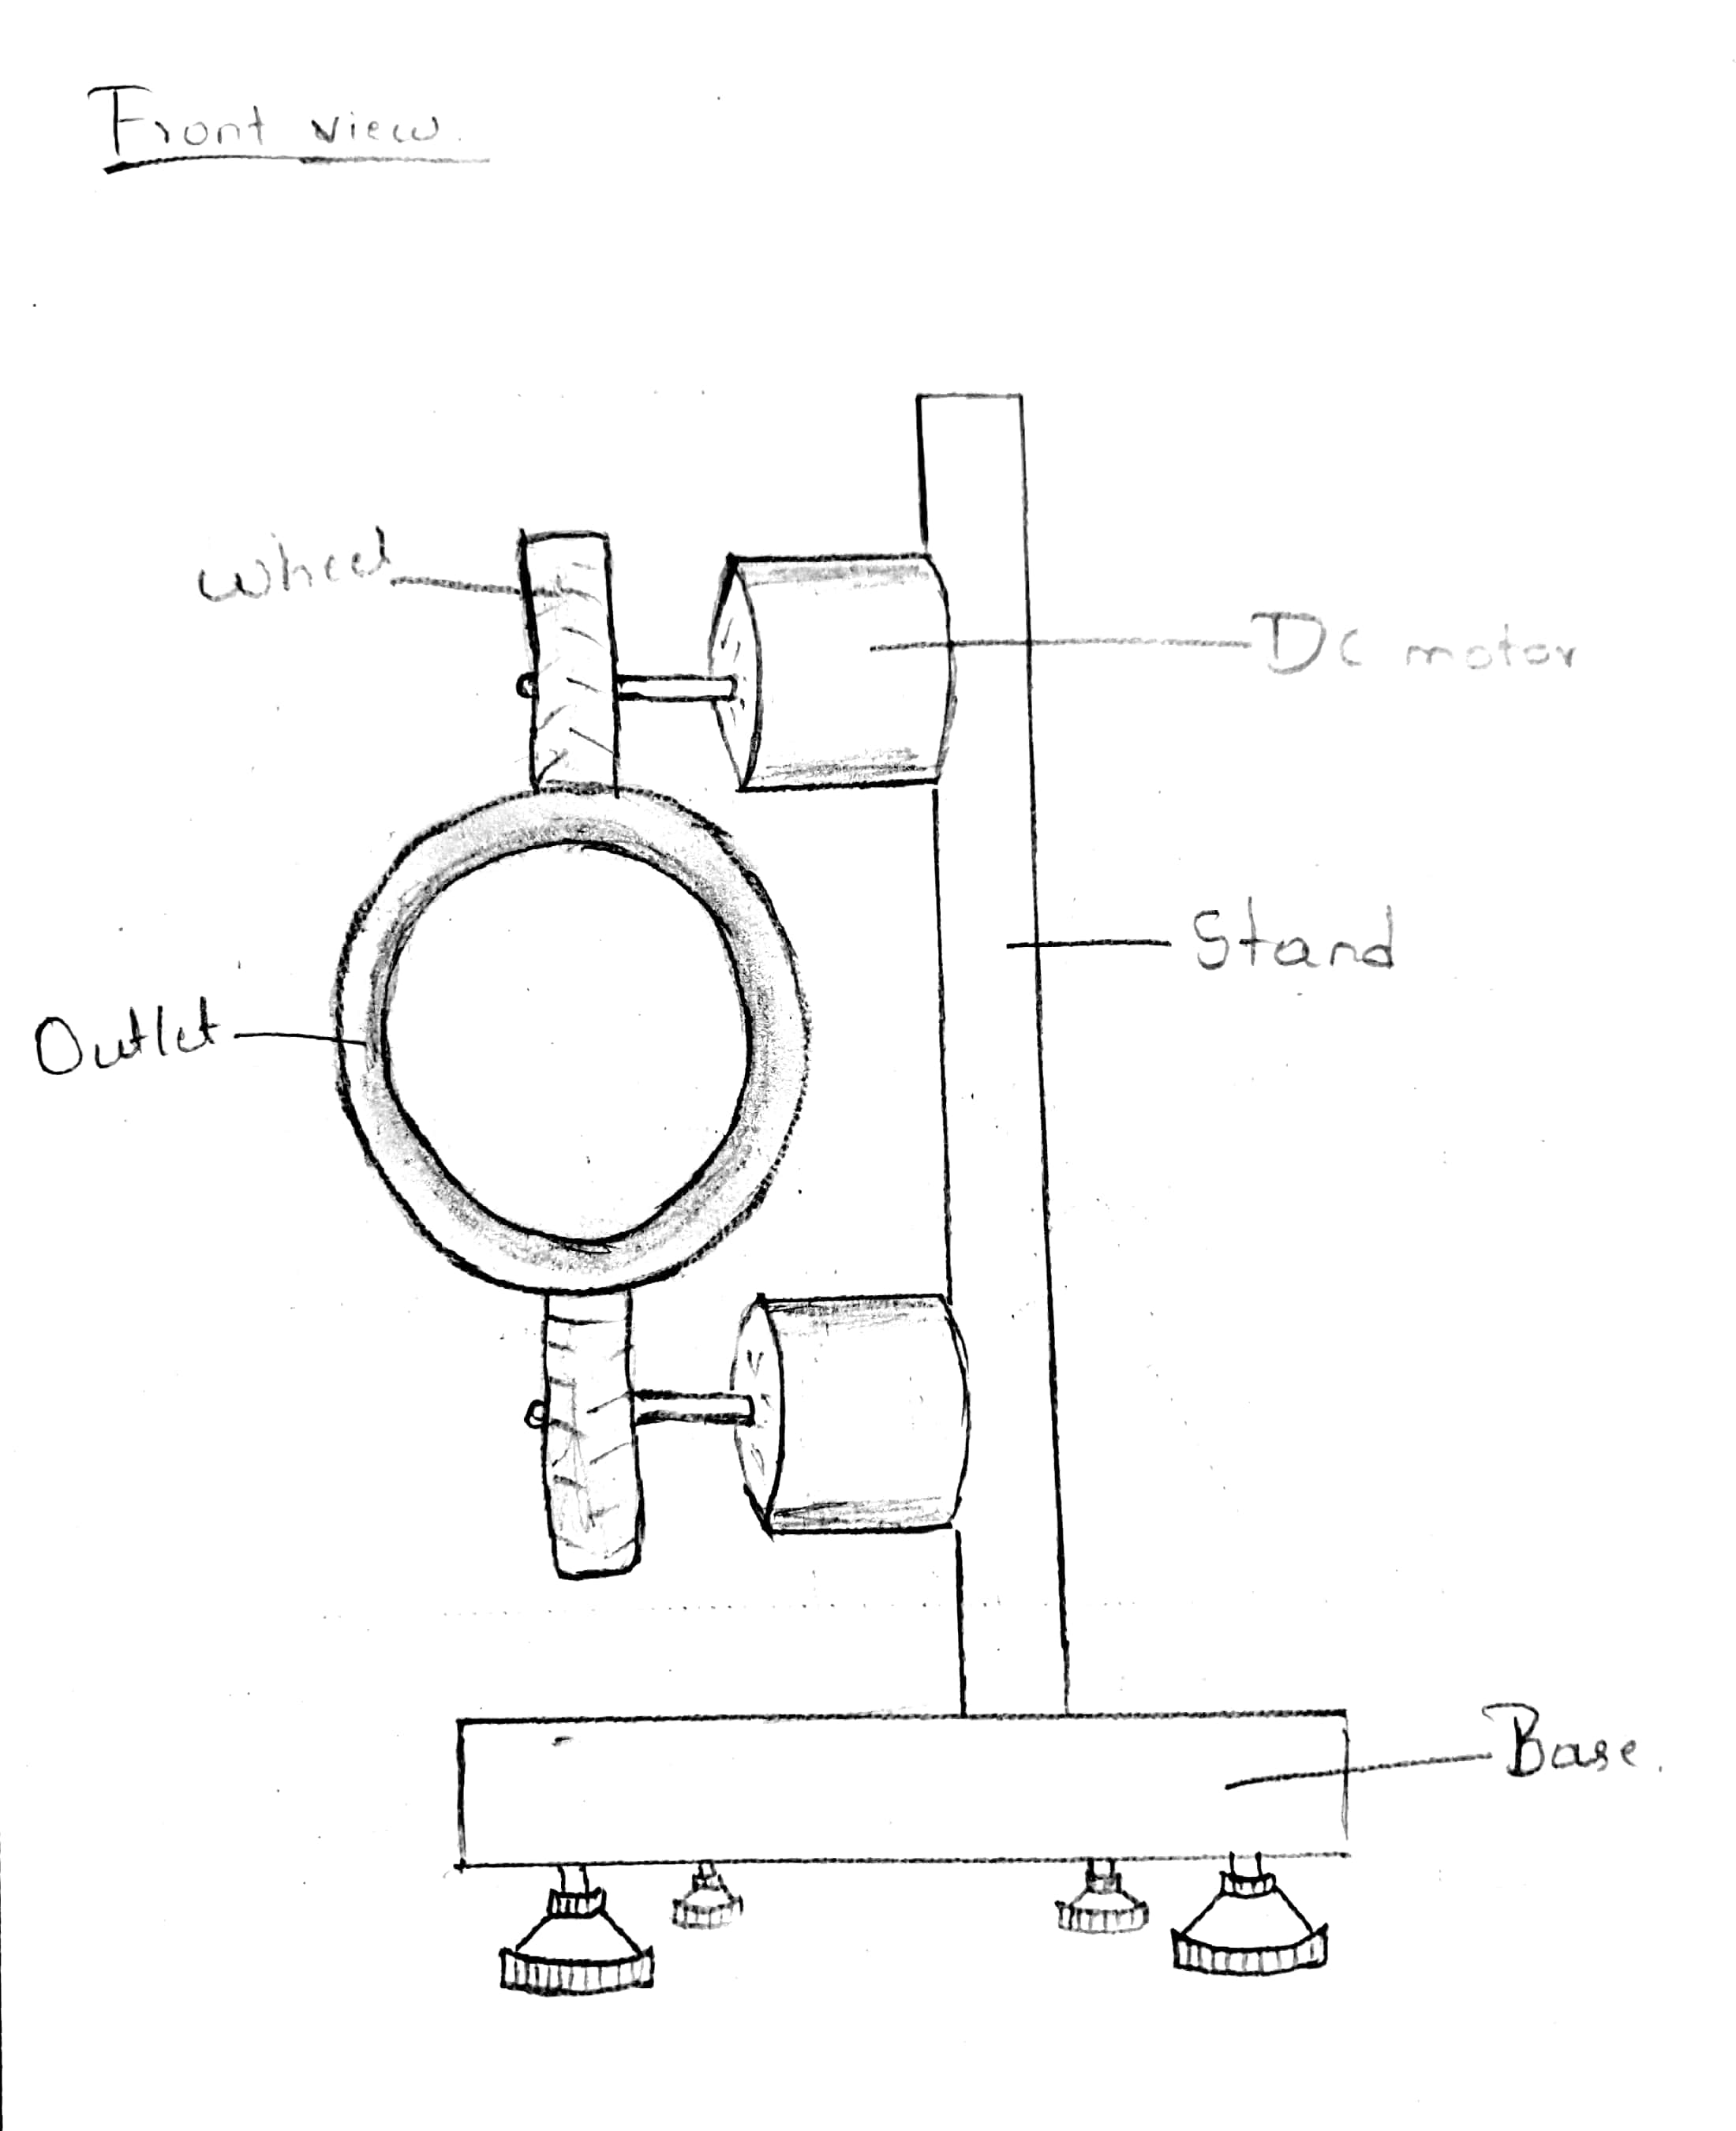 Front view.
Wheel
DC motor
Stand
Outlet
Base.